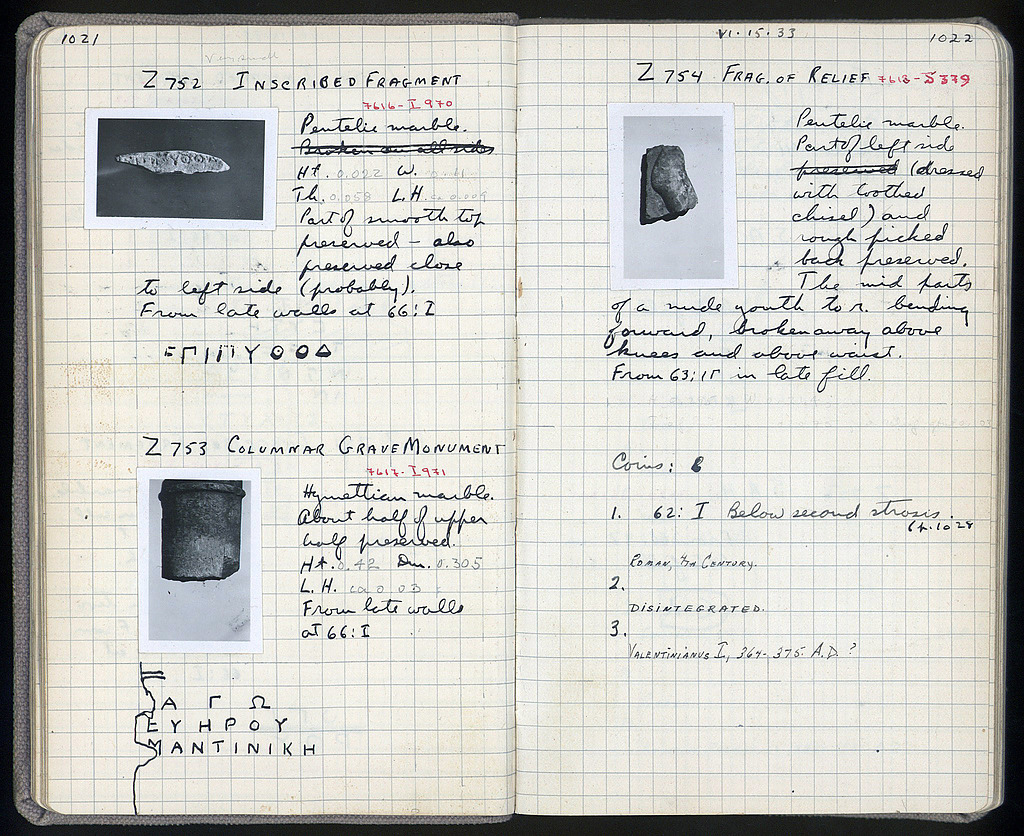 1021
Z 752 INSCRIBED FRAGMENT
7616 - I 970
Pentelic marble.
Broken on all sides
Ht. 0.022 W.
Th. 0.058 L.H. ca 0.009
Part of smooth top
preserved – also
preserved close
to left side (probably).
From late walls at 66: I
Υ Ο Ο Δ
Z 753 COLUMNAR GRAVE MONUMENT
7617 - I 971
Hymettian marble.
About half of upper
half preserved.
Ht. 0.42 Dm. 0.305
L.H. ca 0 03
From late walls
at 66: I
Α Γ Ω
ΕΥΗΡΟΥ
ΜΑΝΤΙΝΙΚΗ
VI. 15. 33
1022
Z 754 FRAG. OF RELIEF 7618 - S 379
Pentelic marble.
Part of left side
preserved (dressed
with toothed
chisel) and
rough picked
back preserved.
The mid parts
of a nude youth to r. bending
forward, broken away above
knees and above waist.
From 63: in late fill.
Coins:
1. 62: I Below second strosis.
ROMAN, 4TH CENTURY.
2.
DISINTEGRATED.
3.
VALENTINIANUS I, 364-375. A.D.?